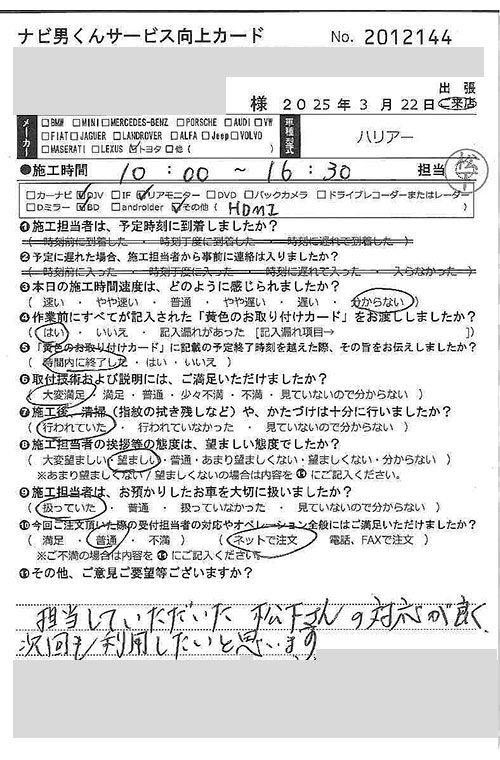 ナビ男くんサービス向上カード No. 2012144
様 2025年3月22日 出張・ご来店
メーカー □BMW □MINI □MERCEDES-BENZ □PORSCHE □AUDI □VW 車種型式 ハリアー
□FIAT □JAGUER □LANDROVER □ALFA □Jeep □VOLVO
□MASERATI □LEXUS ☑トヨタ □他( )
●施工時間 10:00~16:30 担当 松下
□カーナビ ☑DJV □IF ☑リアモニター □DVD □バックカメラ □ドライブレコーダーまたはレーダー
□Dミラー ☑BD □androider ☑その他( HDMI
❶施工担当者は、予定時刻に到着しましたか?
( 時刻前に到着した ・ 時刻丁度に到着した ・ 時刻に遅れて到着した )
❷予定に遅れた場合、施工担当者から事前に連絡は入りましたか?
( 時刻前に入った ・ 時刻丁度に入った ・ 時刻に遅れて入った ・ 入らなかった )
❸本日の施工時間速度は、どのように感じられましたか?
( 速い ・ やや速い ・ 普通 ・ やや遅い ・ 遅い ・ 分からない )
❹作業前にすべてが記入された「黄色のお取り付けカード」をお渡ししましたか?
( はい ・ いいえ ・ 記入漏れがあった [記入漏れ項目→ ])
❺「黄色のお取り付けカード」に記載の予定終了時刻を越えた際、その旨をお伝えしましたか?
( 時間内に終了した ・ はい ・ いいえ )
❻取付技術および説明には、ご満足いただけましたか?
( 大変満足 ・ 満足 ・ 普通 ・ 少々不満 ・ 不満 ・ 見ていないので分からない )
❼施工後、清掃(指紋の拭き残しなど)や、かたづけは十分に行いましたか?
( 行われていた ・ 行われていなかった ・ 見ていないので分からない )
❽施工担当者の挨拶等の態度は、望ましい態度でしたか?
( 大変望ましい・望ましい・普通・あまり望ましくない・望ましくない・分からない )
※あまり望ましくない/望ましくないの場合は内容を⓫にご記入ください。
❾施工担当者は、お預かりしたお車を大切に扱いましたか?
( 扱っていた ・ 普通 ・ 扱っていなかった ・ 見ていないので分からない )
❿今回ご注文頂いた際の受付担当者の対応やオペレーション全般にはご満足いただけましたか?
( 満足 ・ 普通 ・ 不満 ) ( ネットで注文 電話、FAXで注文 )
※ご不満の場合は内容を⓫にご記入ください。
⓫その他、ご意見ご要望等ございますか?
担当していただいた 松下さん の対応が良く
次回も利用したいと思います